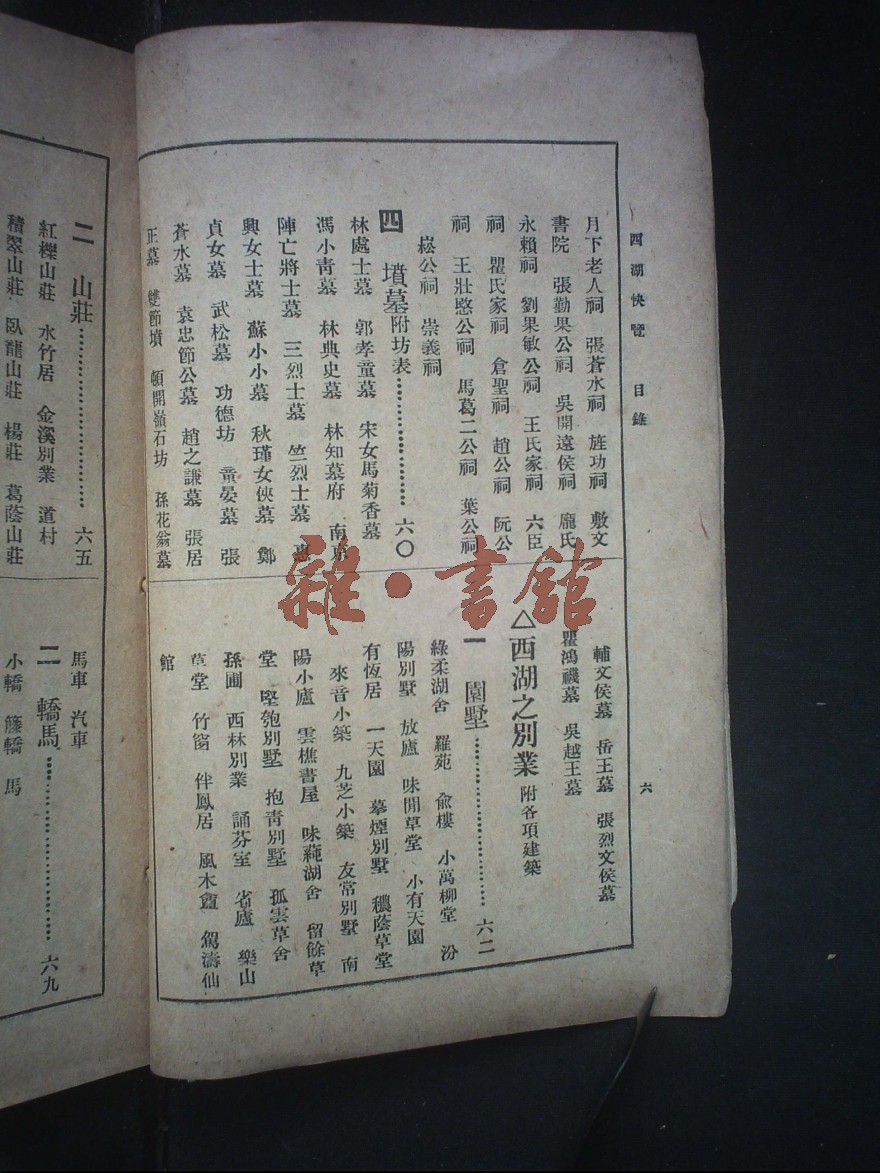 西湖快覽　目錄　六
月下老人祠　張蒼水祠　旌功祠　敷文
書院　張勤果公祠　吳開遠侯祠　龐氏
永賴祠　劉果敏公祠　王氏家祠　六臣
祠　瞿氏家祠　倉聖祠　趙公祠　阮公
祠　王壯愍公祠　馬葛二公祠　葉公祠
崧公祠　崇義祠
四　墳墓附坊表………………六〇
林處士墓　郭孝童墓　宋女馬菊香墓
馮小青墓　林典史墓　林知墓府　南京
陣亡將士墓　三烈士墓　竺烈士墓　惠
興女士墓　蘇小小墓　秋瑾女俠墓　鄭
貞女墓　武松墓　功德坊　童晏墓　張
蒼水墓　袁忠節公墓　趙之謙墓　張居
正墓　雙節墳　頓開嶺石坊　孫花翁墓
輔文侯墓　岳王墓　張烈文侯墓
瞿鴻禨墓　吳越王墓
△西湖之別業　附各項建築
一　園墅………………六二
綠柔湖舍　羅苑　俞樓　小萬柳堂　汾
陽別墅　放廬　味閒草堂　小有天園
有恆居　一天園　摹煙別墅　穠蔭草堂
來音小築　九芝小築　友常別墅　南
陽小廬　雲樵書屋　味蒓湖舍　留餘草
堂　堅匏別墅　抱青別墅　孤雲草舍
孫圃　西林別業　誦芬室　省廬　樂山
草堂　竹窗　伴鳳居　風木盦　駕濤仙
館
雜·書館
二　山莊………………六五
紅櫟山莊　水竹居　金溪別業　道村
積翠山莊　臥龍山莊　楊莊　葛蔭山莊
馬車　汽車
二　轎馬………………六九
小轎　籐轎　馬